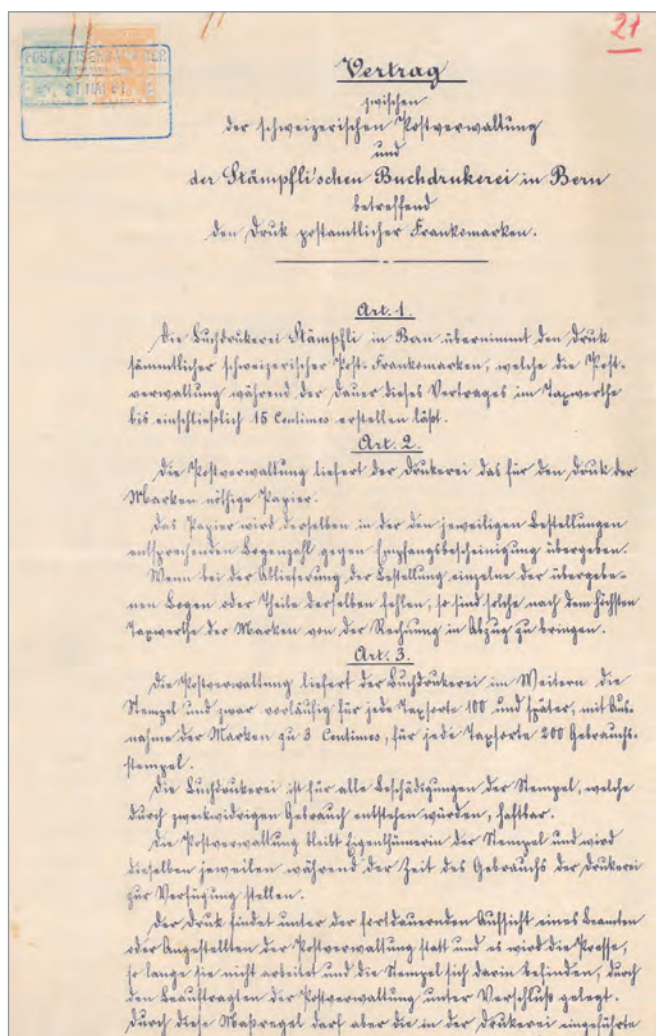 21
POST & EISENBAHN DEP.
21 MAI 81
Vertrag
zwischen
der schweizerischen Postverwaltung
und
der Stämpfli'schen Buchdrukerei in Bern
betreffend
den Druk postamtlicher Frankomarken.
Art. 1.
Die Buchdrukerei Stämpfli in Bern übernimmt den Druk
sämmtlicher schweizerischer Post-Frankomarken, welche die Post-
verwaltung während der Dauer dieses Vertrages im Taxwerthe
bis einschließlich 15 Centimes erstellen läßt.
Art. 2.
Die Postverwaltung liefert der Drukerei das für den Druk der
Marken nöthige Papier.
Das Papier wird derselben in der den jeweiligen Bestellungen
entsprechenden Bogenzahl gegen Empfangsbescheinigung übergeben.
Wenn bei der Ablieferung der Bestellung einzelne der übergebe-
nen Bogen oder Theile derselben fehlen, so sind solche nach dem höchsten
Taxwerthe der Marken von der Rechnung in Abzug zu bringen.
Art. 3.
Die Postverwaltung liefert der Buchdrukerei im Weitern die
Stempel und zwar vorläufig für jede Taxsorte 100 und später, mit Aus-
nahme der Marken zu 3 Centimes, für jede Taxsorte 200 Gebrauchs-
stempel.
Die Buchdrukerei ist für alle Beschädigungen der Stempel, welche
durch zweckwidrigen Gebrauch entstehen würden, haftbar.
Die Postverwaltung bleibt Eigenthümerin der Stempel und wird
dieselben jeweilen während der Zeit des Gebrauchs der Drukerei
zur Verfügung stellen.
Der Druk findet unter der fortdauernden Aufsicht eines Beamten
oder Angestellten der Postverwaltung statt und es wird die Presse,
so lange sie nicht arbeitet und die Stempel sich darin befinden, durch
den Beauftragten der Postverwaltung unter Verschluß gelegt.
Durch diese Maßregel darf aber die in der Drukerei eingeführte